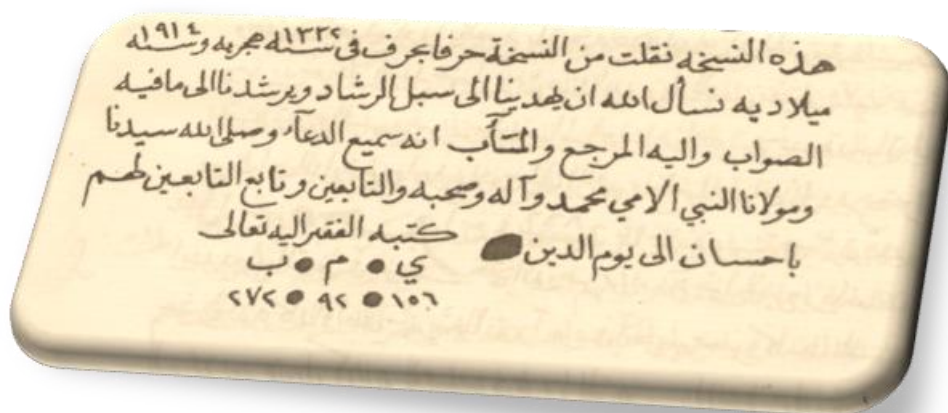 هذه النسخه نقلت من النسخة حرفا بحرف فى سنه ١٣٣٢ هجريه وسنه ١٩١٤
ميلاديه نسأل الله ان يهدينا الى سبل الرشاد ويرشدنا الى مافيه
الصواب واليه المرجع والمـآب انه سميع الدعآء وصلى الله سيدنا
ومولانا النبي الامي محمد وآله وصحبه والتابعين وتابع التابعين لهم
باحسان الى يوم الدين ● كتبه الفقير اليه تعالى
ي ● م ● ب
١٥٦ ● ٩٢ ● ٢٧٢